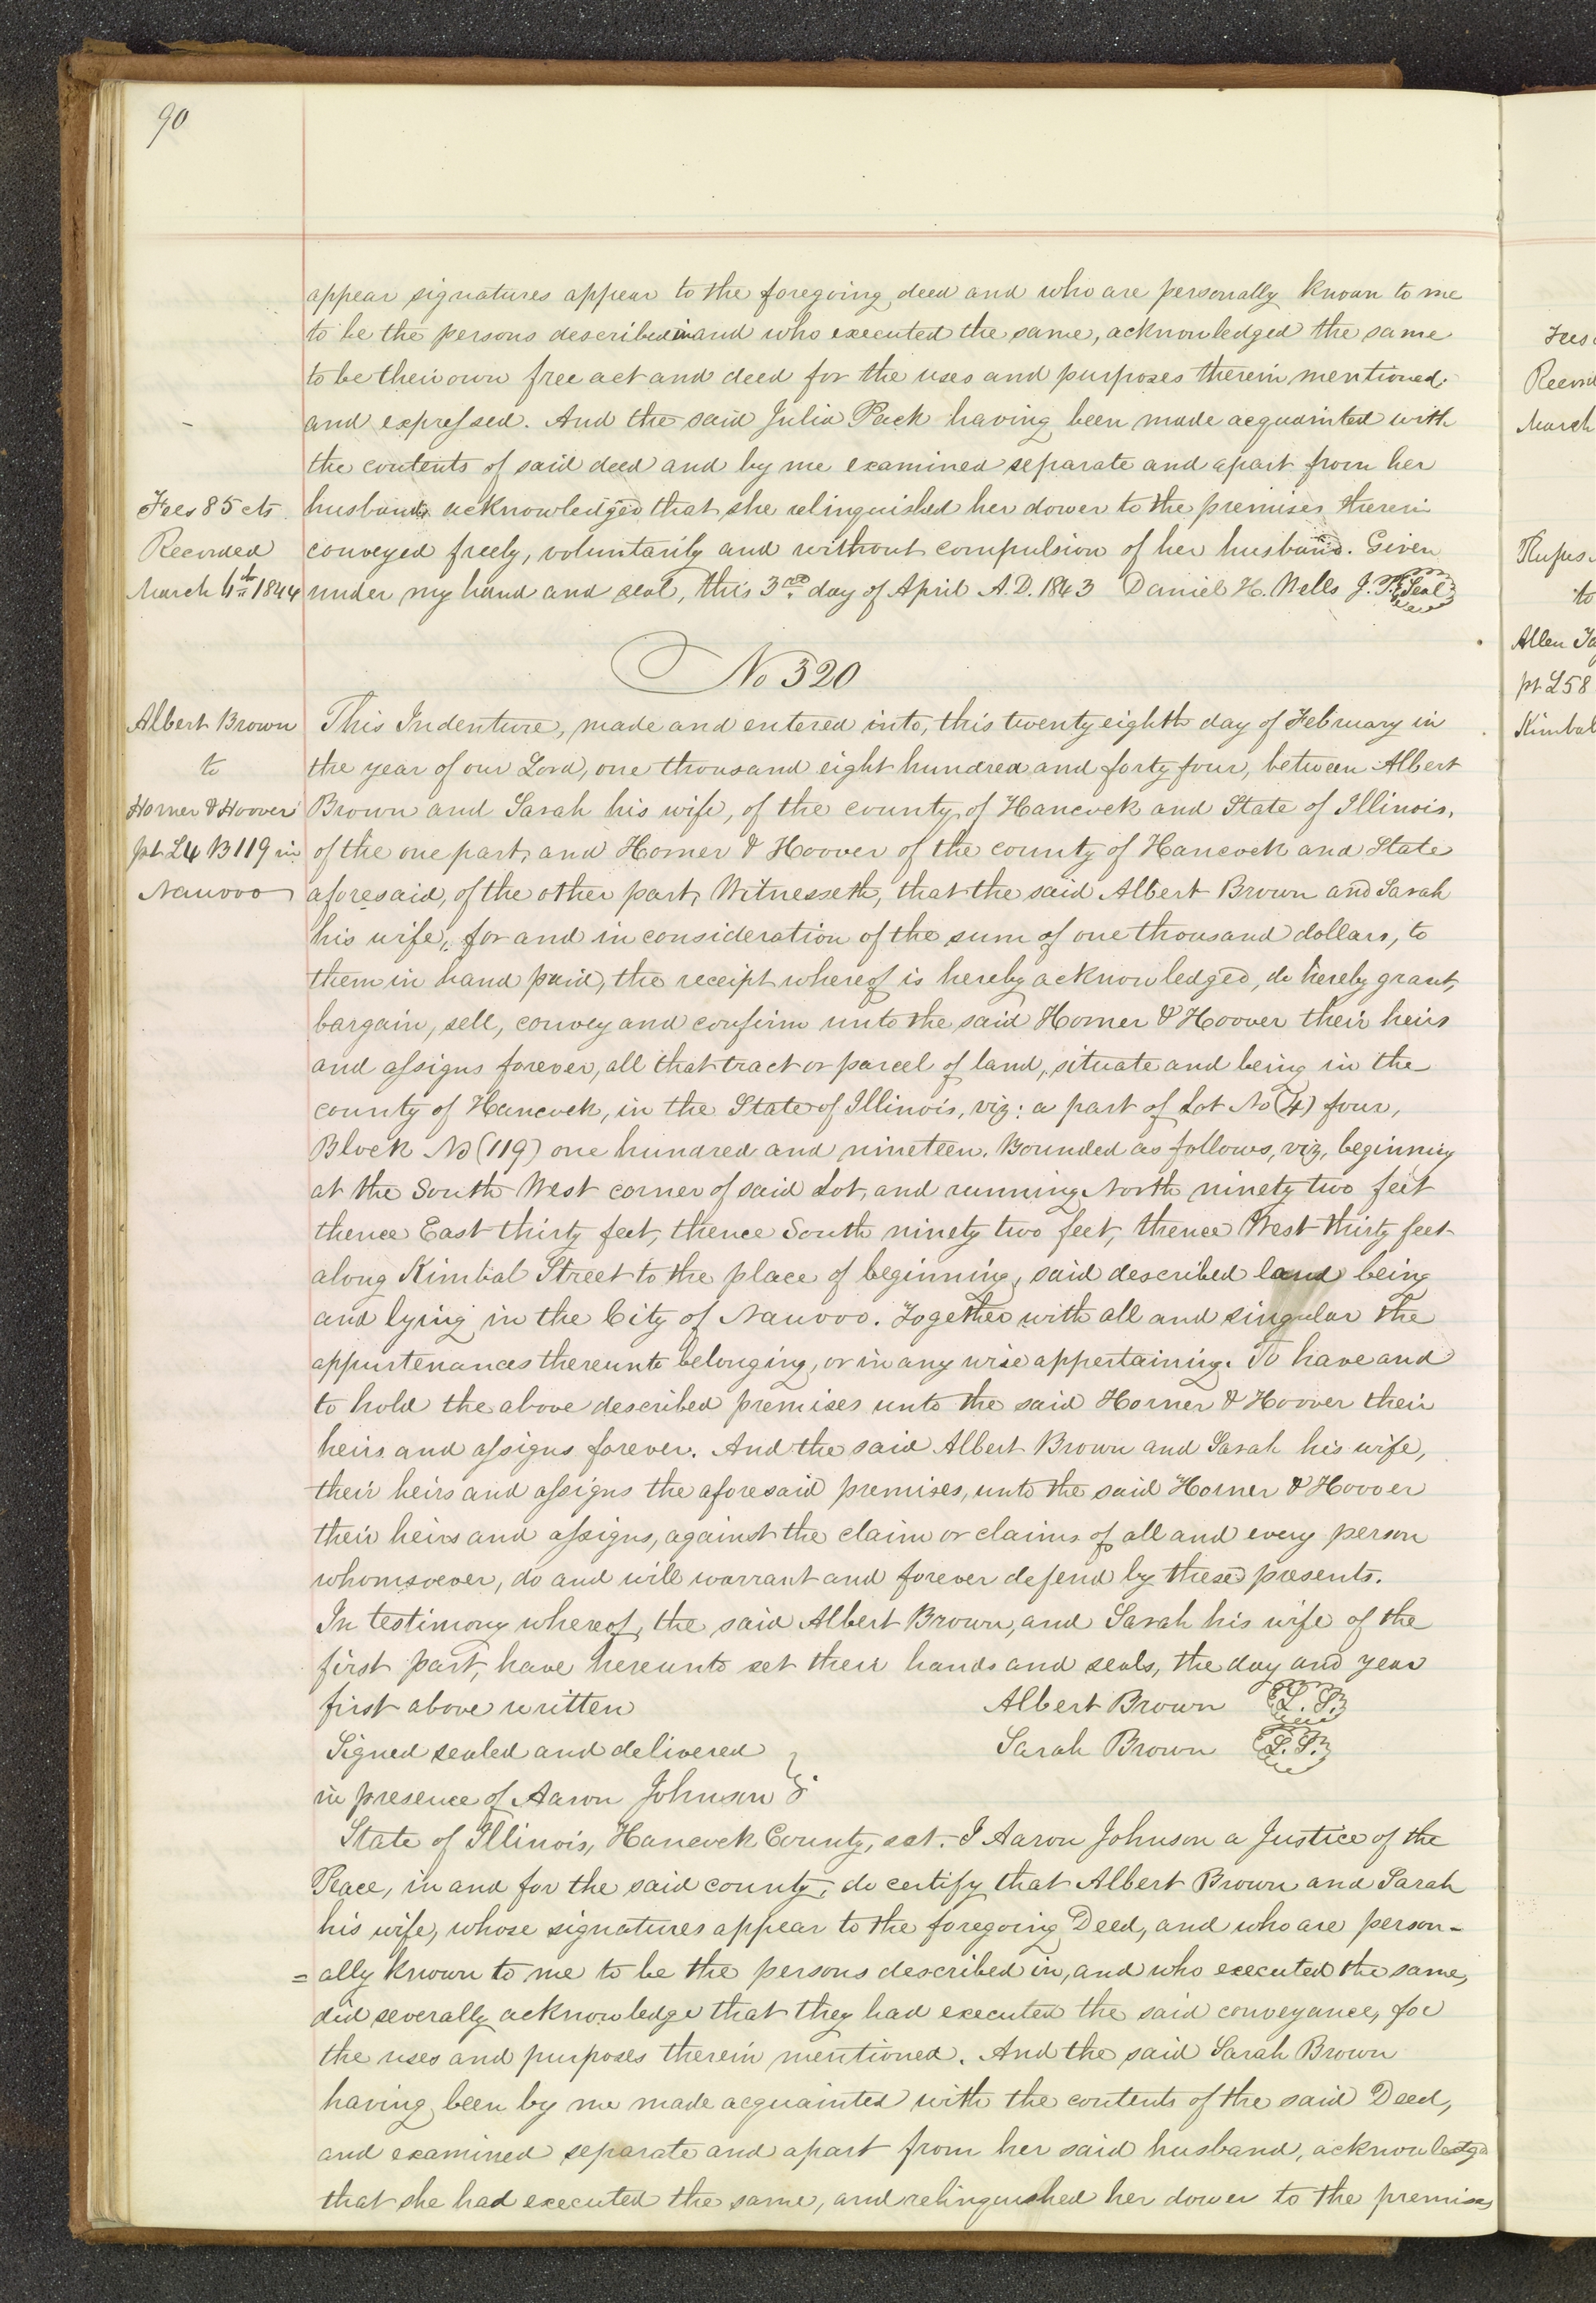 90
appear signatures appear to the foregoing deed and who are personally known to me
to be the persons described in and who executed the same, acknowledged the same
to be their own free act and deed for the uses and purposes therein mentioned
and expressed. And the said Julia Pack having been made acquainted with
the contents of said deed and by me examined separate and apart from her
husband, acknowledged that she relinquished her dower to the premises therein
conveyed freely, voluntarily and without compulsion of her husband. Given
under my hand and seal, this 3rd day of April A.D. 1843 Daniel H. Wells J.P. Seal
Fees 85 cts
Recorded
March 6th 1844
No 320
Albert Brown
to
Horner & Hoover
pt L4 B119 in
Nauvoo
This Indenture, made and entered into, this twenty eighth day of February in
the year of our Lord, one thousand eight hundred and forty four, between Albert
Brown and Sarah his wife, of the county of Hancock and State of Illinois,
of the one part, and Horner & Hoover of the county of Hancock and State
aforesaid, of the other part, Witnesseth, that the said Albert Brown and Sarah
his wife, for and in consideration of the sum of one thousand dollars, to
them in hand paid, the receipt whereof is hereby acknowledged, do hereby grant,
bargain, sell, convey and confirm unto the said Horner & Hoover their heirs
and assigns forever, all that tract or parcel of land, situate and being in the
county of Hancock, in the State of Illinois, viz: a part of Lot No (4) four,
Block No (119) one hundred and nineteen. Bounded as follows, viz, beginning
at the South West corner of said Lot, and running North ninety two feet
thence East thirty feet, thence South ninety two feet, thence West thirty feet
along Kimbal Street to the place of beginning, said described land being
and lying in the City of Nauvoo. Together with all and singular the
appurtenances thereunto belonging, or in any wise appertaining. To have and
to hold the above described premises unto the said Horner & Hoover their
heirs and assigns forever. And the said Albert Brown and Sarah his wife,
their heirs and assigns the aforesaid premises, unto the said Horner & Hoover
their heirs and assigns, against the claim or claims of all and every person
whomsoever, do and will warrant and forever defend by these presents.
In testimony whereof, the said Albert Brown, and Sarah his wife of the
first part, have hereunto set their hands and seals, the day and year
first above written Albert Brown L.S.
Signed sealed and delivered Sarah Brown L.S.
in presence of Aaron Johnson
State of Illinois, Hancock County, sct. I Aaron Johnson a Justice of the
Peace, in and for the said county, do certify that Albert Brown and Sarah
his wife, whose signatures appear to the foregoing Deed, and who are person-
=ally known to me to be the persons described in, and who executed the same,
did severally acknowledge that they had executed the said conveyance, for
the uses and purposes therein mentioned. And the said Sarah Brown
having been by me made acquainted with the contents of the said Deed,
and examined separate and apart from her said husband, acknowledged
that she had executed the same, and relinquished her dower to the premises
Fees
Record
March
Rufus
to
Allen Ta
pt L58
Kimbal